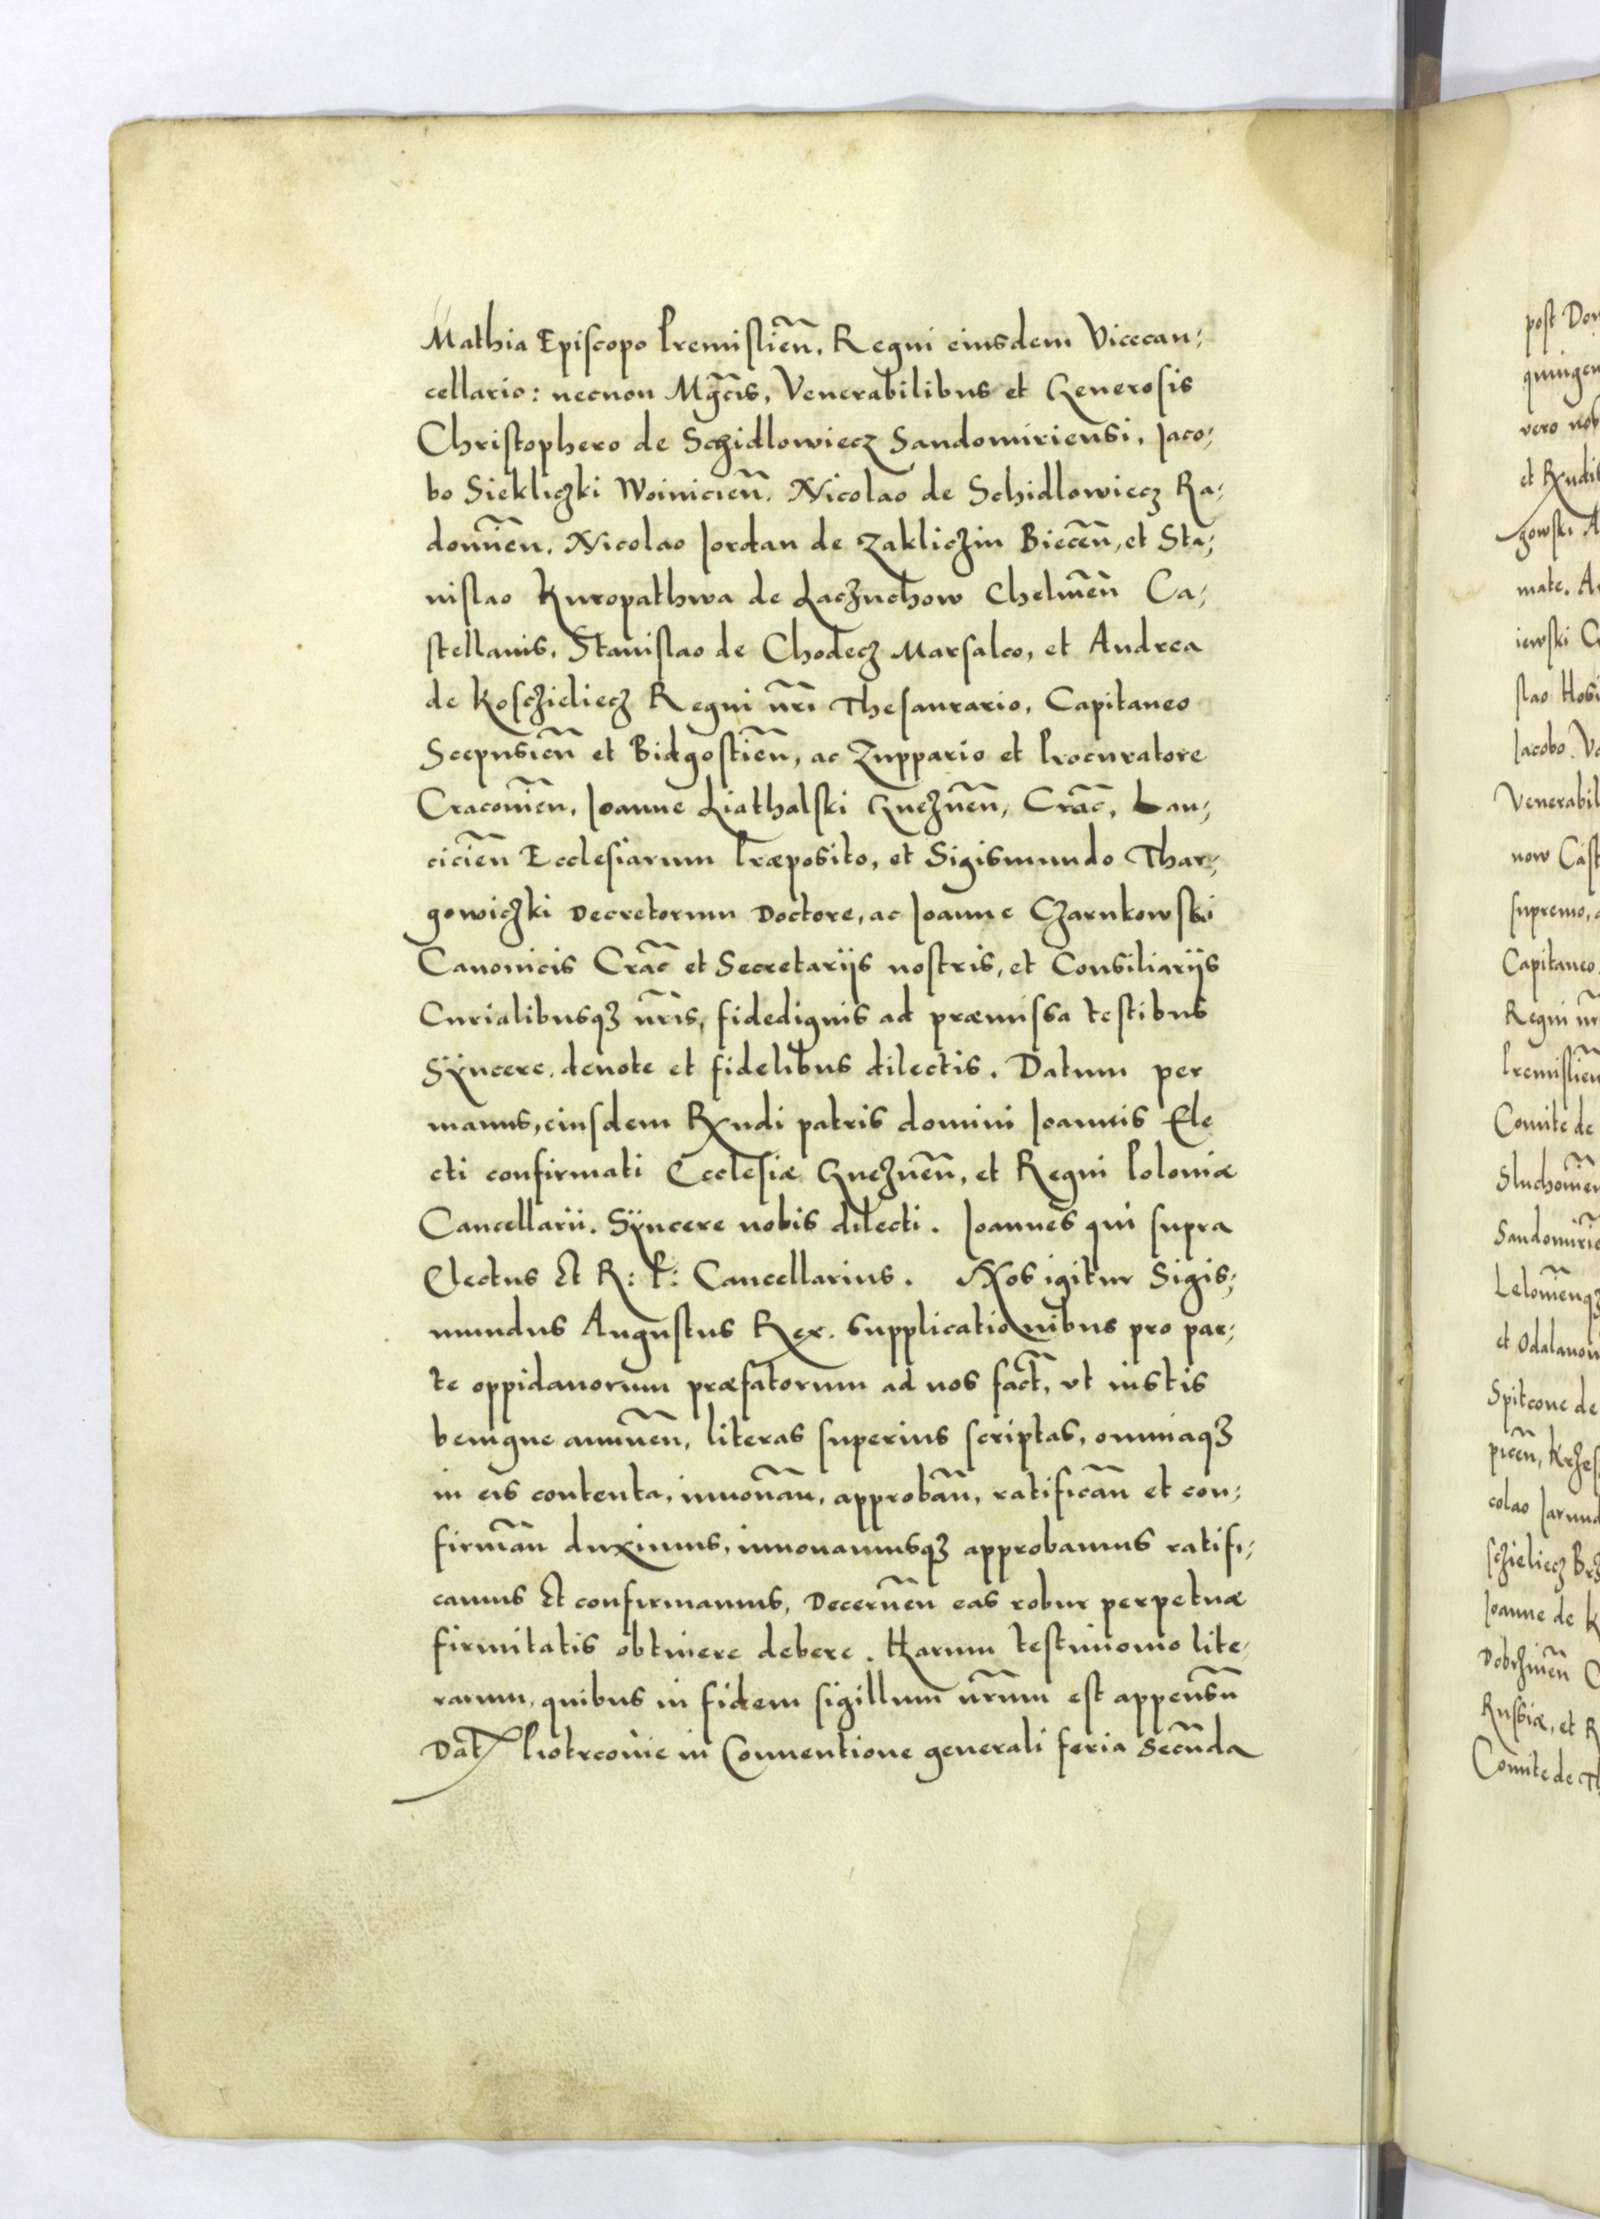 Mathia Episcopo Premislien̄. Regni eiusdem Vicecan-
cellario: necnon Mgc̄is, Venerabilibus et Generosis
Christophero de Schidlowiecz Sandomiriensi, Jaco-
bo Siekliczki Woinicien̄. Nicolao de Schidlowiecz Ra-
domien̄. Nicolao Jordan de Zakliczin Biecen̄, et Sta-
nislao Kuropathwa de Laczuchow Chelmen̄ Ca-
stellanis, Stanislao de Chodecz Marsalco, et Andrea
de Kosczieliecz Regni nr̄i Thesaurario, Capitaneo
Scepusien̄ et Bidgostien̄, ac Zuppario et Procuratore
Cracovien̄, Joanne Liathalski Gneznen̄, Crac̄, Lan-
cicien̄ Ecclesiarum Præposito, et Sigismundo Thar-
gowiczki Decretorum Doctore, ac Joanne Czarnkowski
Canonicis Crac̄ et Secretarijs nostris, et Consiliarijs
Curialibusqȝ nr̄is, fidedignis ad præmissa testibus
Sÿncere, deuote et fidelibus dilectis. Datum per
manus, eiusdem Rx̄ndi patris domini Joannis Ele
cti confirmati Ecclesiæ Gneznen̄, et Regni Poloniæ
Cancellarii. Sÿncere nobis dilecti. Joannes qui supra
Electus et R: P: Cancellarius. Nos igitur Sigis-
mundus Augustus Rex. supplicationibus pro par-
te oppidanorum præfatorum ad nos fact̄, vt iustis
benigne annuen̄, literas superius scriptas, omniaqȝ
in eis contenta, innouan̄, approban̄, ratifican̄ et con-
firman̄ duximus, innouamusqȝ approbamus ratifi-
camus et confirmamus, Decernen̄ eas robur perpetuæ
firmitatis obtinere debere. Harum testimonio lite-
rarum, quibus in fidem sigillum nr̄um est appensū
Dat̄ Piotrcovie in Conuentione generali feria Secūda
post Do
quingen
vero nos
et Rxndis
gowski
mate. A
iewski
slao Hosi
Jacobo. V
Venerabil
now Cast
supremo,
Capitaneo
Regni nr
Premislien̄
Comite de
Sluchomien̄
Sandomirie
Lelomenqȝ
et Odalanou
Spitcone de
picen̄, Krzes
colao Jarund
sczieliecz Brz
Joanne de K
Dobrzinen̄
Russiæ, et R
Comite de Th